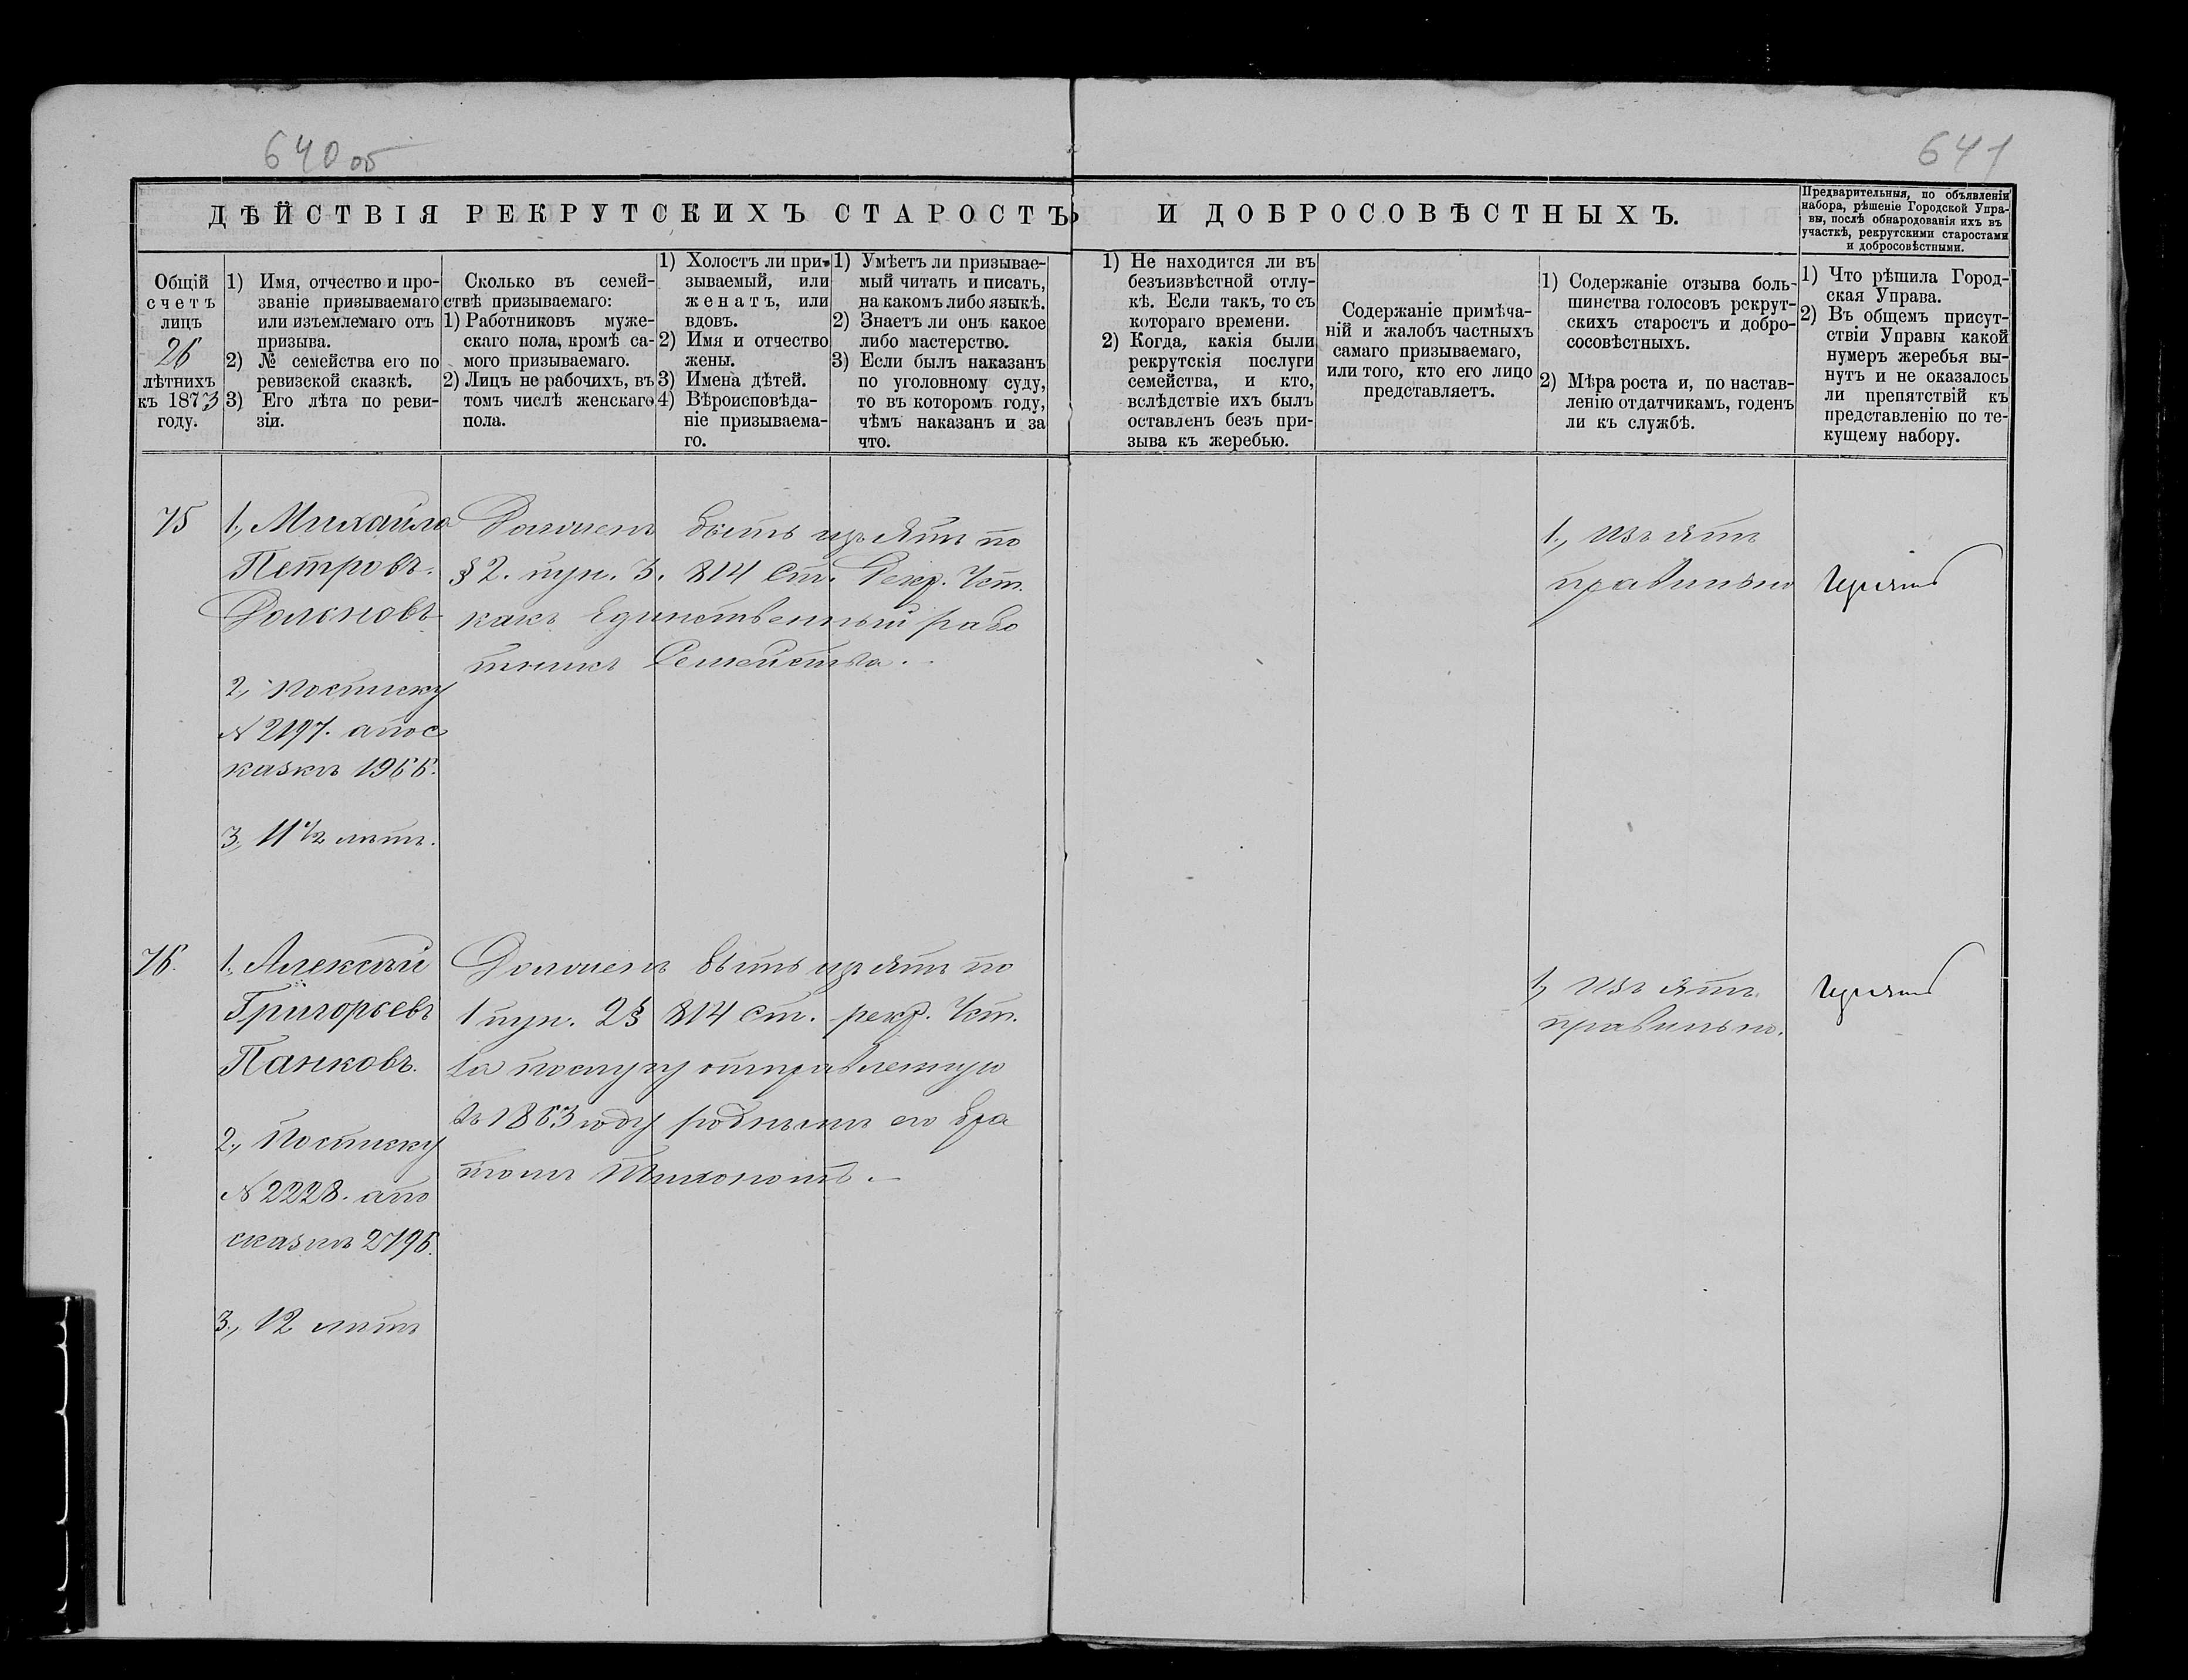 640 об
641
ДѢЙСТВІЯ РЕКРУТСКИХЪ СТАРОСТЪ И ДОБРОСОВѢСТНЫХЪ.
Предварительныя, по объявленіи
набора, рѣшеніе Городской Упра-
вы, послѣ обнародованія ихъ въ
участкѣ, рекрутскими старостами
и добросовѣстными.
Общій
счетъ
лицъ
26
лѣтнихъ
къ 1873
году.
1) Имя, отчество и про-
званіе призываемаго
или изъемлемаго отъ
призыва.
2) № семейства его по
ревизской сказкѣ.
3) Его лѣта по реви-
зіи.
Сколько въ семей-
ствѣ призываемаго:
1) Работниковъ муже-
скаго пола, кромѣ са-
мого призываемаго.
2) Лицъ не рабочихъ, въ
томъ числѣ женскаго
пола.
1) Холостъ ли при-
зываемый, или
женатъ, или
вдовъ.
2) Имя и отчество
жены.
3) Имена дѣтей.
4) Вѣроисповѣда-
ніе призываема-
го.
1) Умѣетъ ли призывае-
мый читать и писать,
на какомъ либо языкѣ.
2) Знаетъ ли онъ какое
либо мастерство.
3) Если былъ наказанъ
по уголовному суду,
то въ которомъ году,
чѣмъ наказанъ и за
что.
1) Не находится ли въ
безъизвѣстной отлу-
кѣ. Если такъ, то съ
котораго времени.
2) Когда, какія были
рекрутскія послуги
семейства, и кто,
вслѣдствіе ихъ былъ
оставленъ безъ при-
зыва къ жеребью.
Содержаніе примѣча-
ній и жалобъ частныхъ
самаго призываемаго,
или того, кто его лицо
представляетъ.
1) Содержаніе отзыва боль-
шинства голосовъ рекрут-
скихъ старостъ и добро-
сосовѣстныхъ.
2) Мѣра роста и, по настав-
ленію отдатчикамъ, годенъ
ли къ службѣ.
1) Что рѣшила Город-
ская Управа.
2) Въ общемъ присут-
ствіи Управы какой
нумеръ жеребья вы-
нутъ и не оказалось
ли препятствій къ
представленію по те-
кущему набору.
75
1, Михайло
Петровъ
Долоновъ
2, Посписку
№ 2197. а по с
казкѣ 1966.
3, 11 ½ лѣтъ.
Долженъ быть изъятъ по
§ 2. пун. 3. 814 Ст. Рекр. Уст.
какъ Единственный рабо
тникъ Семейства.
1, Изъятъ
правильно
Изъятъ
76.
1, Алексѣй
Григорьевъ
Панковъ.
2, Посписку
№ 2228. а по
сказкѣ 2196.
3, 12 лѣтъ
Долженъ быть изъятъ по
1 пун. 2 § 814 ст. рекр. Уст.
за послугу отправленную
въ 1863 году роднымъ его бра
томъ Тихономъ.
1, Изъятъ
правильно.
Изъятъ